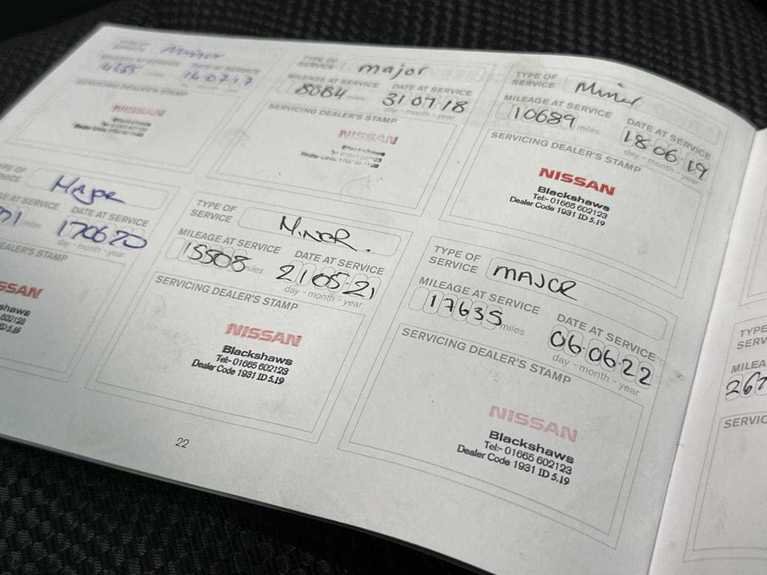 Minor
SERVICE
MILEAGE AT SERVICE
DATE AT SERVICE
16-07-17
SERVICING DEALER'S STAMP
NISSAN
Blackshaws
TYPE OF
SERVICE
major
MILEAGE AT SERVICE
DATE AT SERVICE
8084 miles
31 07 18
day - month - year
SERVICING DEALER'S STAMP
NISSAN
Blackshaws
TYPE OF
SERVICE
Minor
MILEAGE AT SERVICE
DATE AT SERVICE
10689 miles
18.06.19
day - month - year
SERVICING DEALER'S STAMP
NISSAN
Blackshaws
Tel:- 01665 602123
Dealer Code 1931 ID 5.19
TYPE OF
SERVICE
MAJOR
AT SERVICE
DATE AT SERVICE
miles
170620
day - month - year
DEALER'S STAMP
SSAN
TYPE OF
SERVICE
MINOR.
MILEAGE AT SERVICE
DATE AT SERVICE
15508 miles
21.05.21
day - month - year
SERVICING DEALER'S STAMP
NISSAN
Blackshaws
Tel:- 01665 602123
Dealer Code 1931 ID 5.19
TYPE OF
SERVICE
MAJOR
MILEAGE AT SERVICE
DATE AT SERVICE
17635 miles
06.06.22
day - month - year
SERVICING DEALER'S STAMP
NISSAN
Blackshaws
Tel:- 01665 602123
Dealer Code 1931 ID 5.19
22
TYPE
SERV
MILEA
267
SERVIC